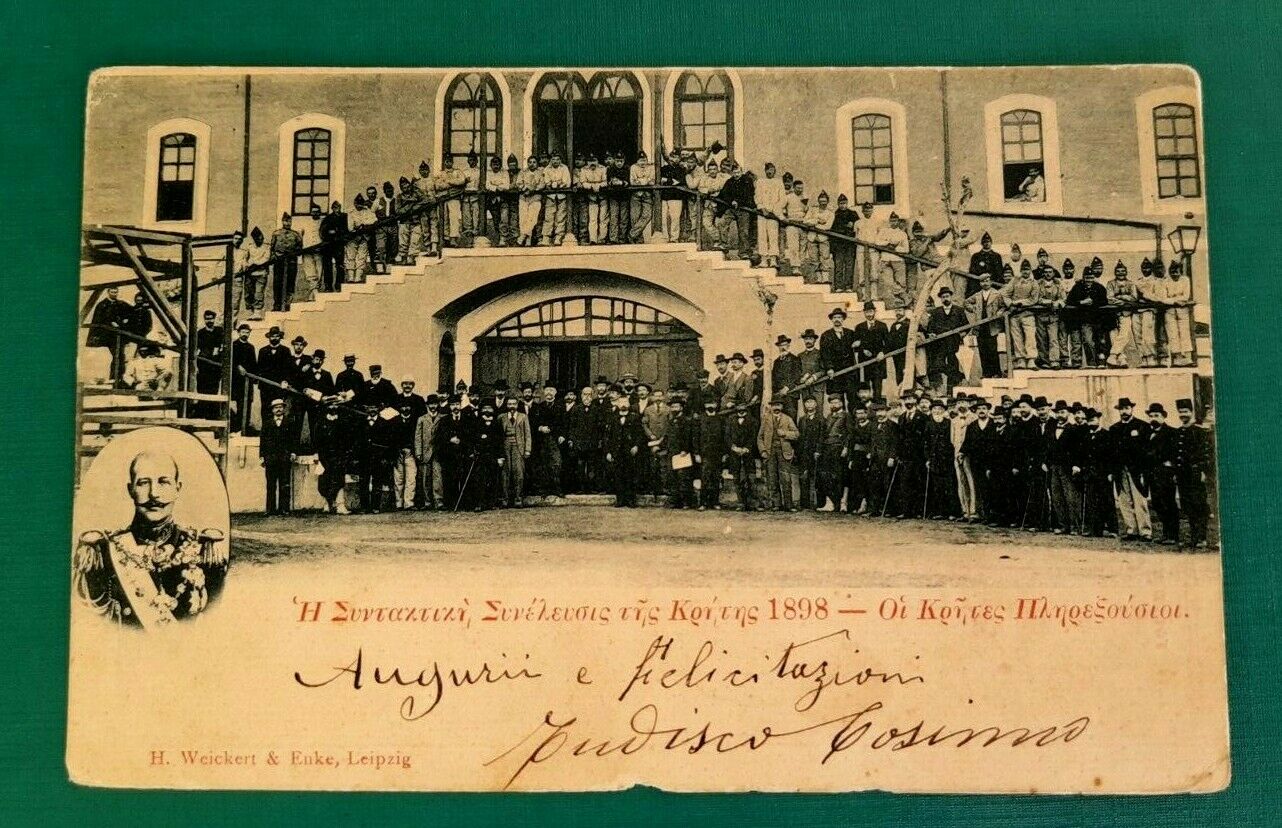 Ἡ Συντακτικὴ Συνέλευσις τῆς Κρήτης 1898 — Οἱ Κρῆτες Πληρεξούσιοι.
Augurii e felicitazioni
Cosimo
H. Weickert & Enke, Leipzig